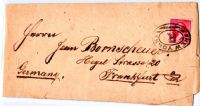 Herrn
Jean Bornscheuer
Hegel Strasse 20
Germany. Frankfurt